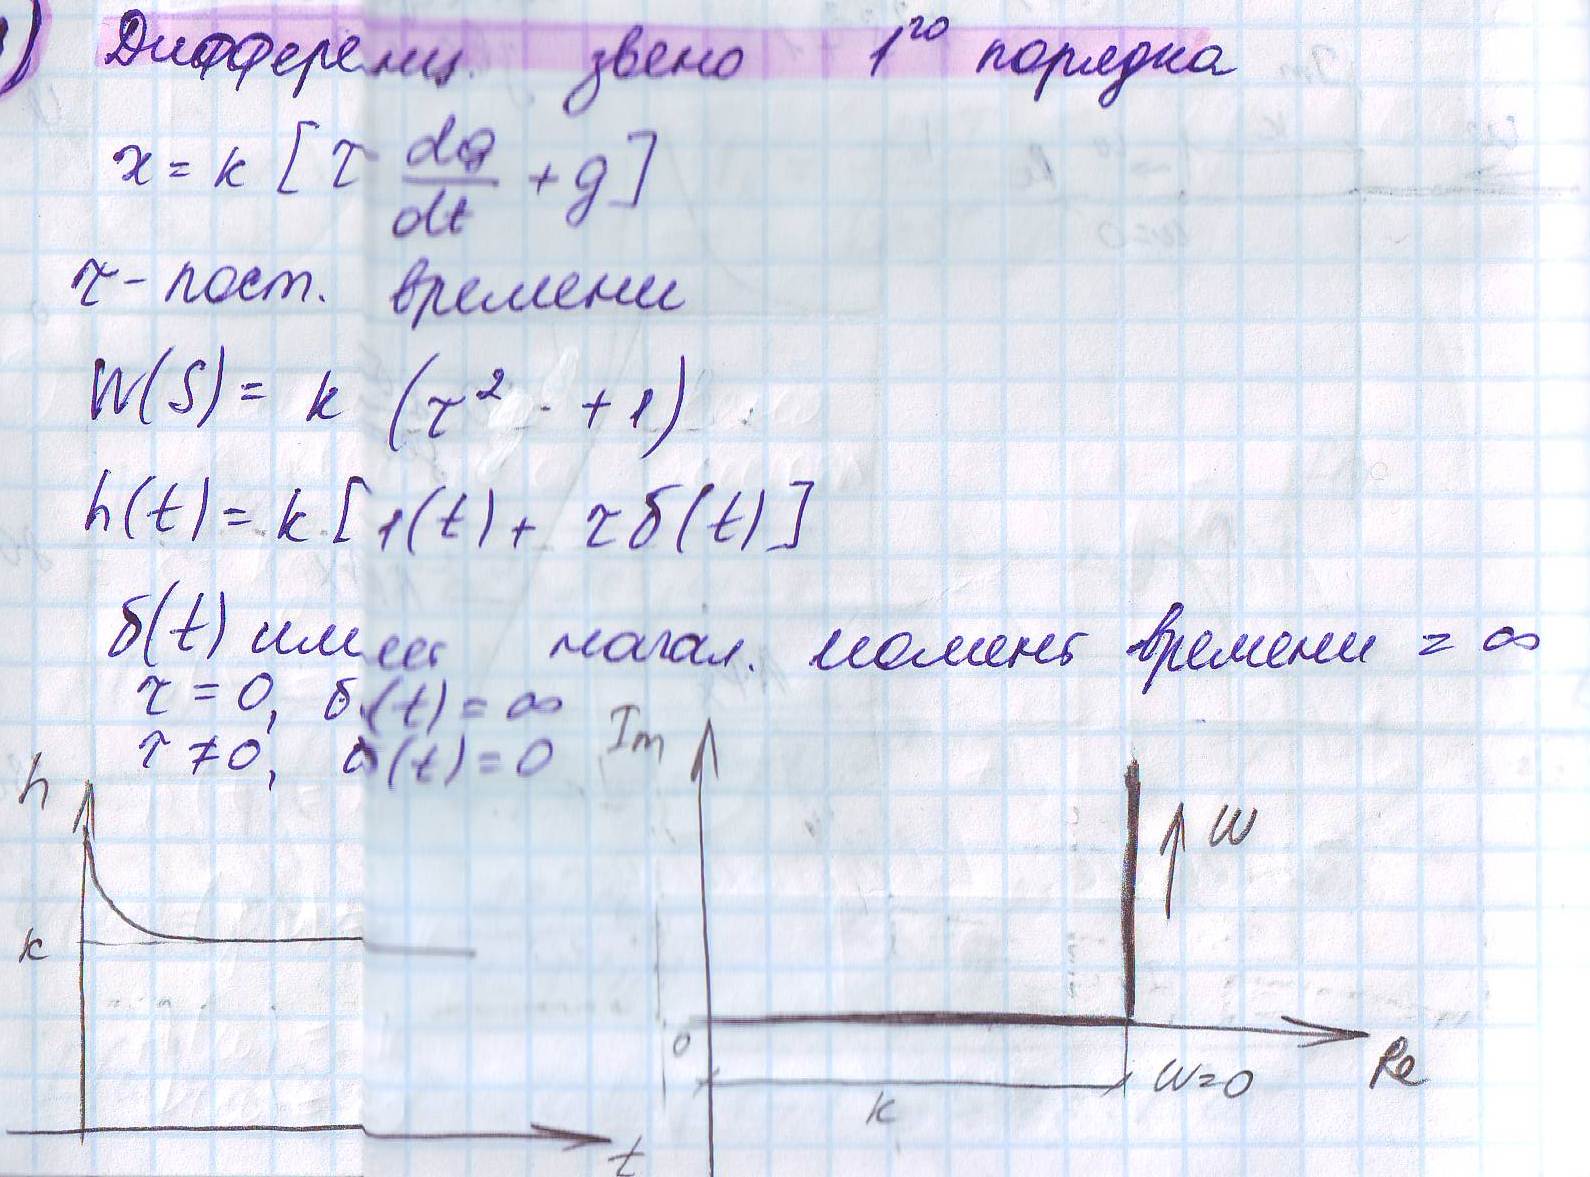 ) Дифференц. звено 1го порядка
x = k [τ dg/dt + g]
τ - пост. времени
W(S) = k (τ² · + 1)
h(t) = k [1(t) + τδ(t)]
δ(t) имеет начал. момент времени = ∞
τ = 0, δ(t) = ∞
τ ≠ 0, δ(t) = 0
h
k
t
Im
W
0
Re
k
W=0